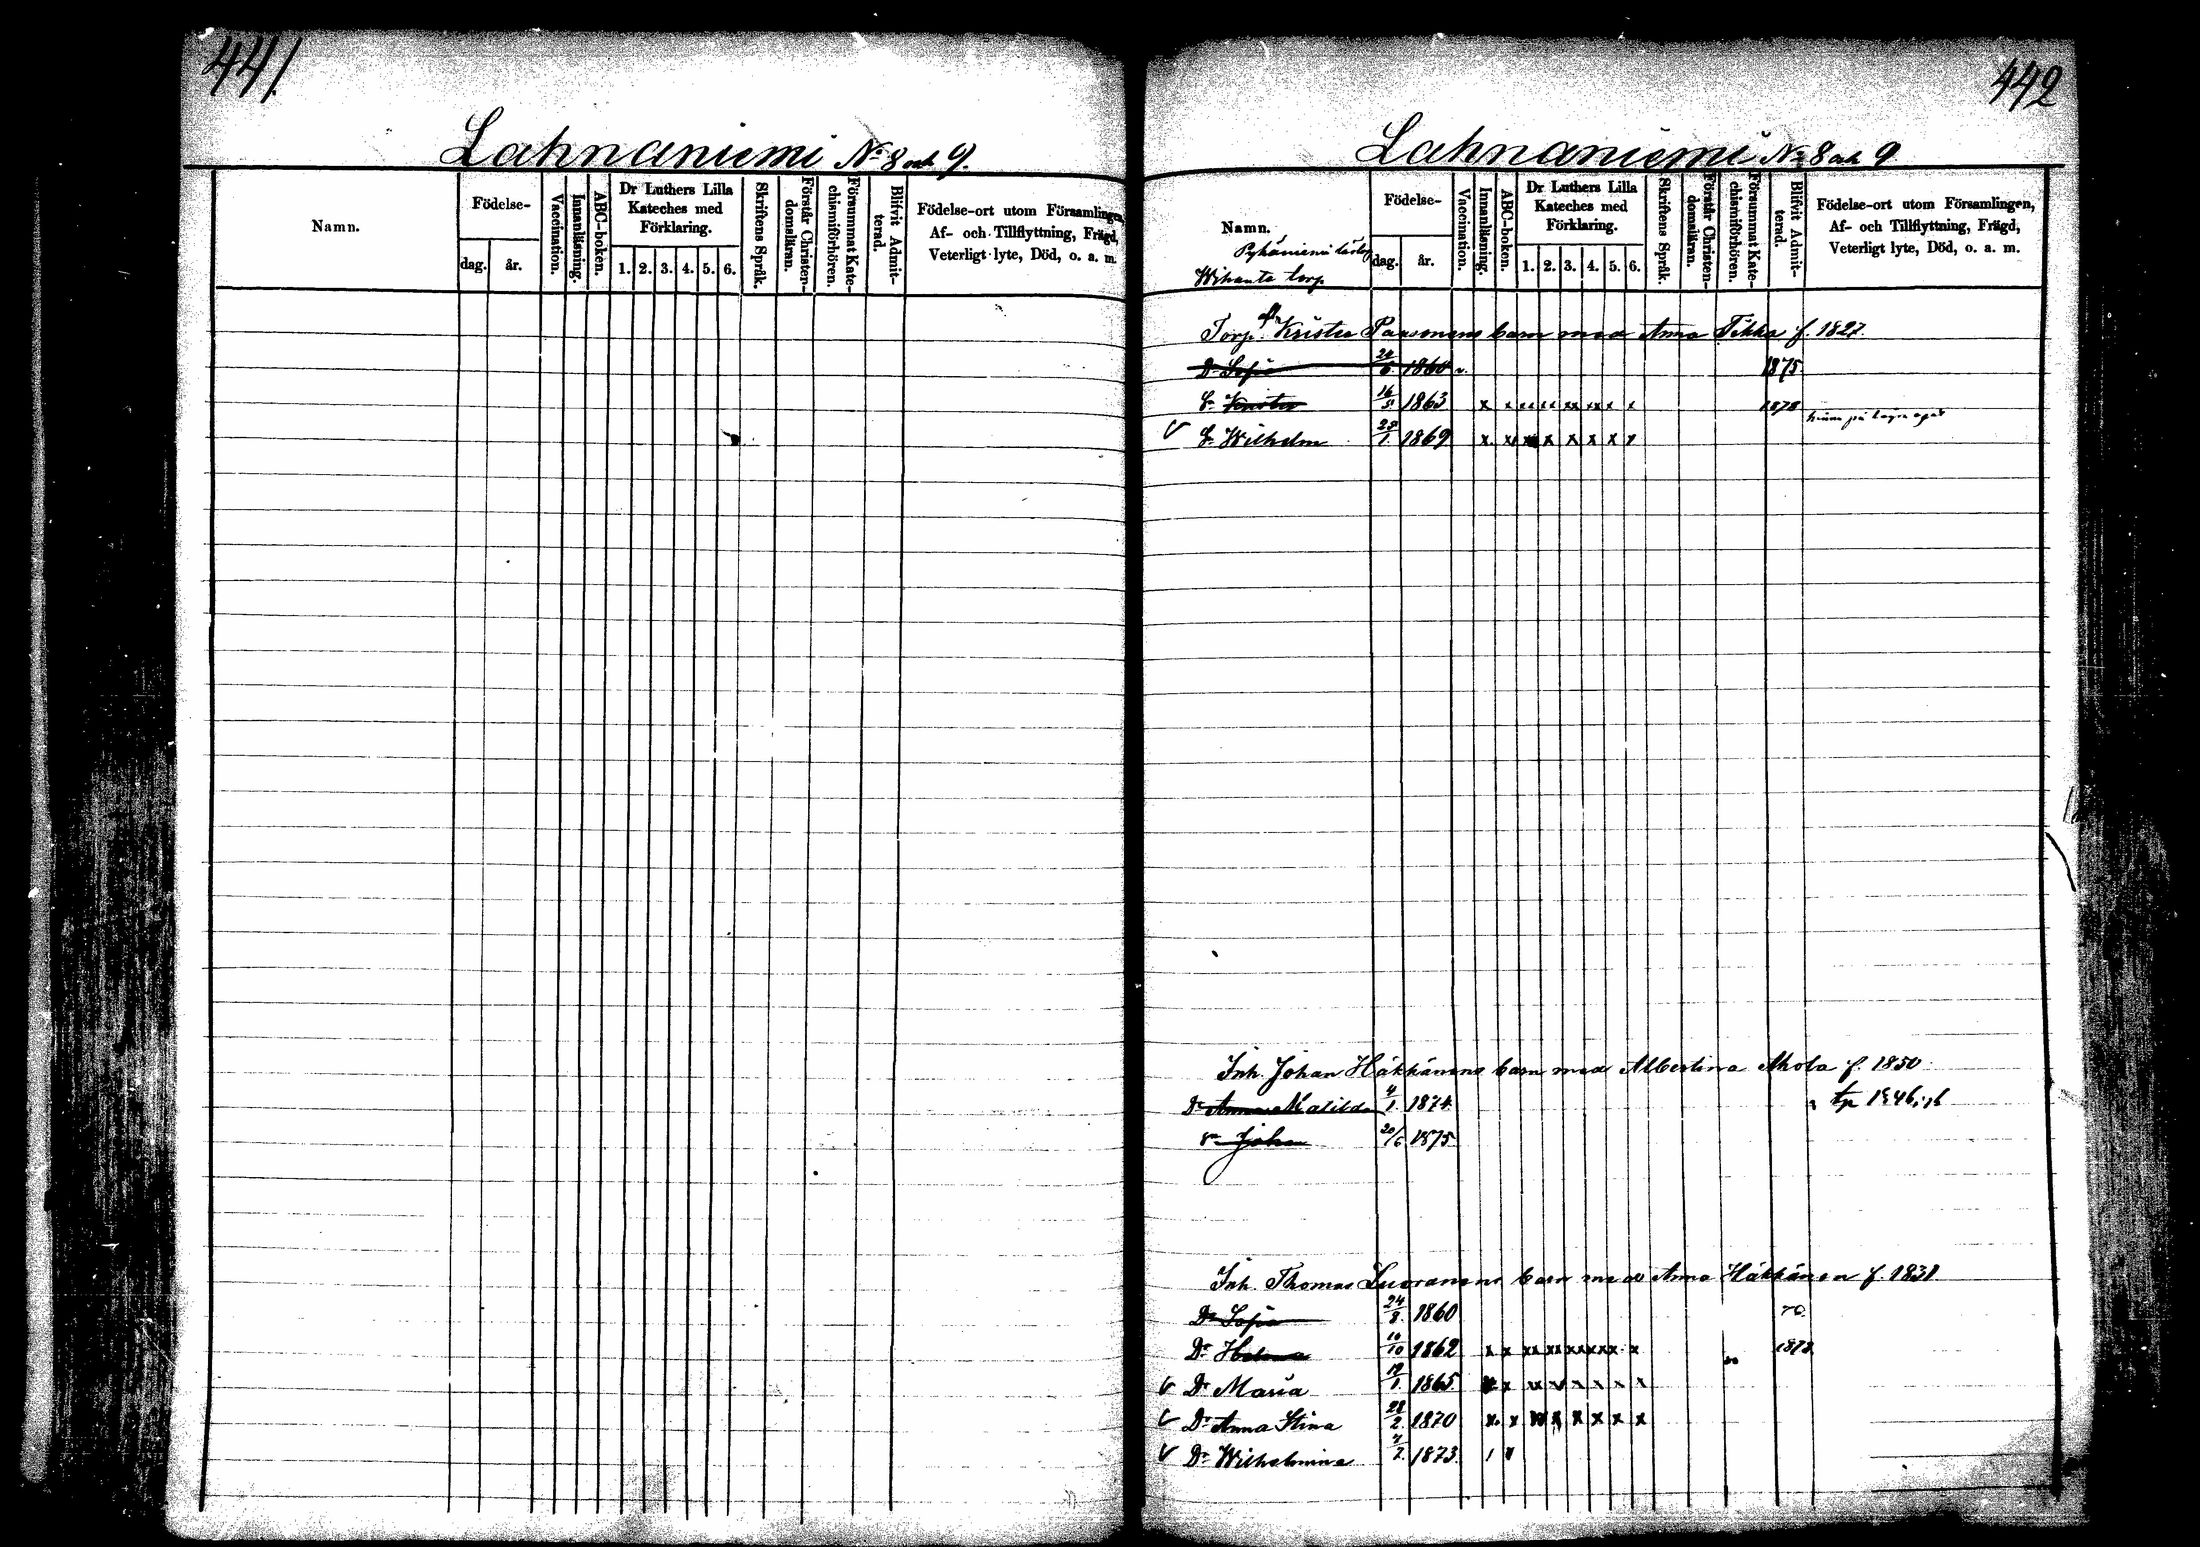 441
Lahnaniemi No 8 och 9.
Namn.
Födelse-
dag.
år.
Vaccination.
Innanläsning.
ABC-boken.
Dr Luthers Lilla
Kateches med
Förklaring.
1. 2. 3. 4. 5. 6.
Skriftens Språk.
Förstår Christen-
domsläran.
Försummat Kate-
chismiförhören.
Blifvit Admit-
terad.
Födelse-ort utom Församlingen,
Af- och Tillflyttning, Frägd,
Veterligt lyte, Död, o. a. m.
442
Lahnaniemi No 8 och 9
Namn.
Pyhäniemi
torp
Födelse-
dag.
år.
Vaccination.
Innanläsning.
ABC-boken.
Dr Luthers Lilla
Kateches med
Förklaring.
1. 2. 3. 4. 5. 6.
Skriftens Språk.
Förstår Christen-
domsläran.
Försummat Kate-
chismiförhören.
Blifvit Admit-
terad.
Födelse-ort utom Församlingen,
Af- och Tillflyttning, Frägd,
Veterligt lyte, Död, o. a. m.
Torp. Krister Paasonens barn med Anna Tikka f. 1827.
Dr Sofia 1860 v. 1875
Sn Krister 1863 x x x x x x x x x x x x 1878
v Sn Wilhelm 28/1. 1869 x x x x x x x x
Inh. Johan Häkkänens barn med Albertina Ahola f. 1850
Dr Anna Matilda 4/1. 1874
Sn Johan 20/6 1875
Inh. Thomas Luoranens barn med Anna Häkkänen f. 1831
Dr Sofia 24/8. 1860
Dr Helena 10/10 1862 x x xx xx xx xx x x 1878
v Dr Maria 1865 x x x x x x x x
v Dr Anna Stina 28/2. 1870 x x x x x x x x
v Dr Wilhelmina 1873.